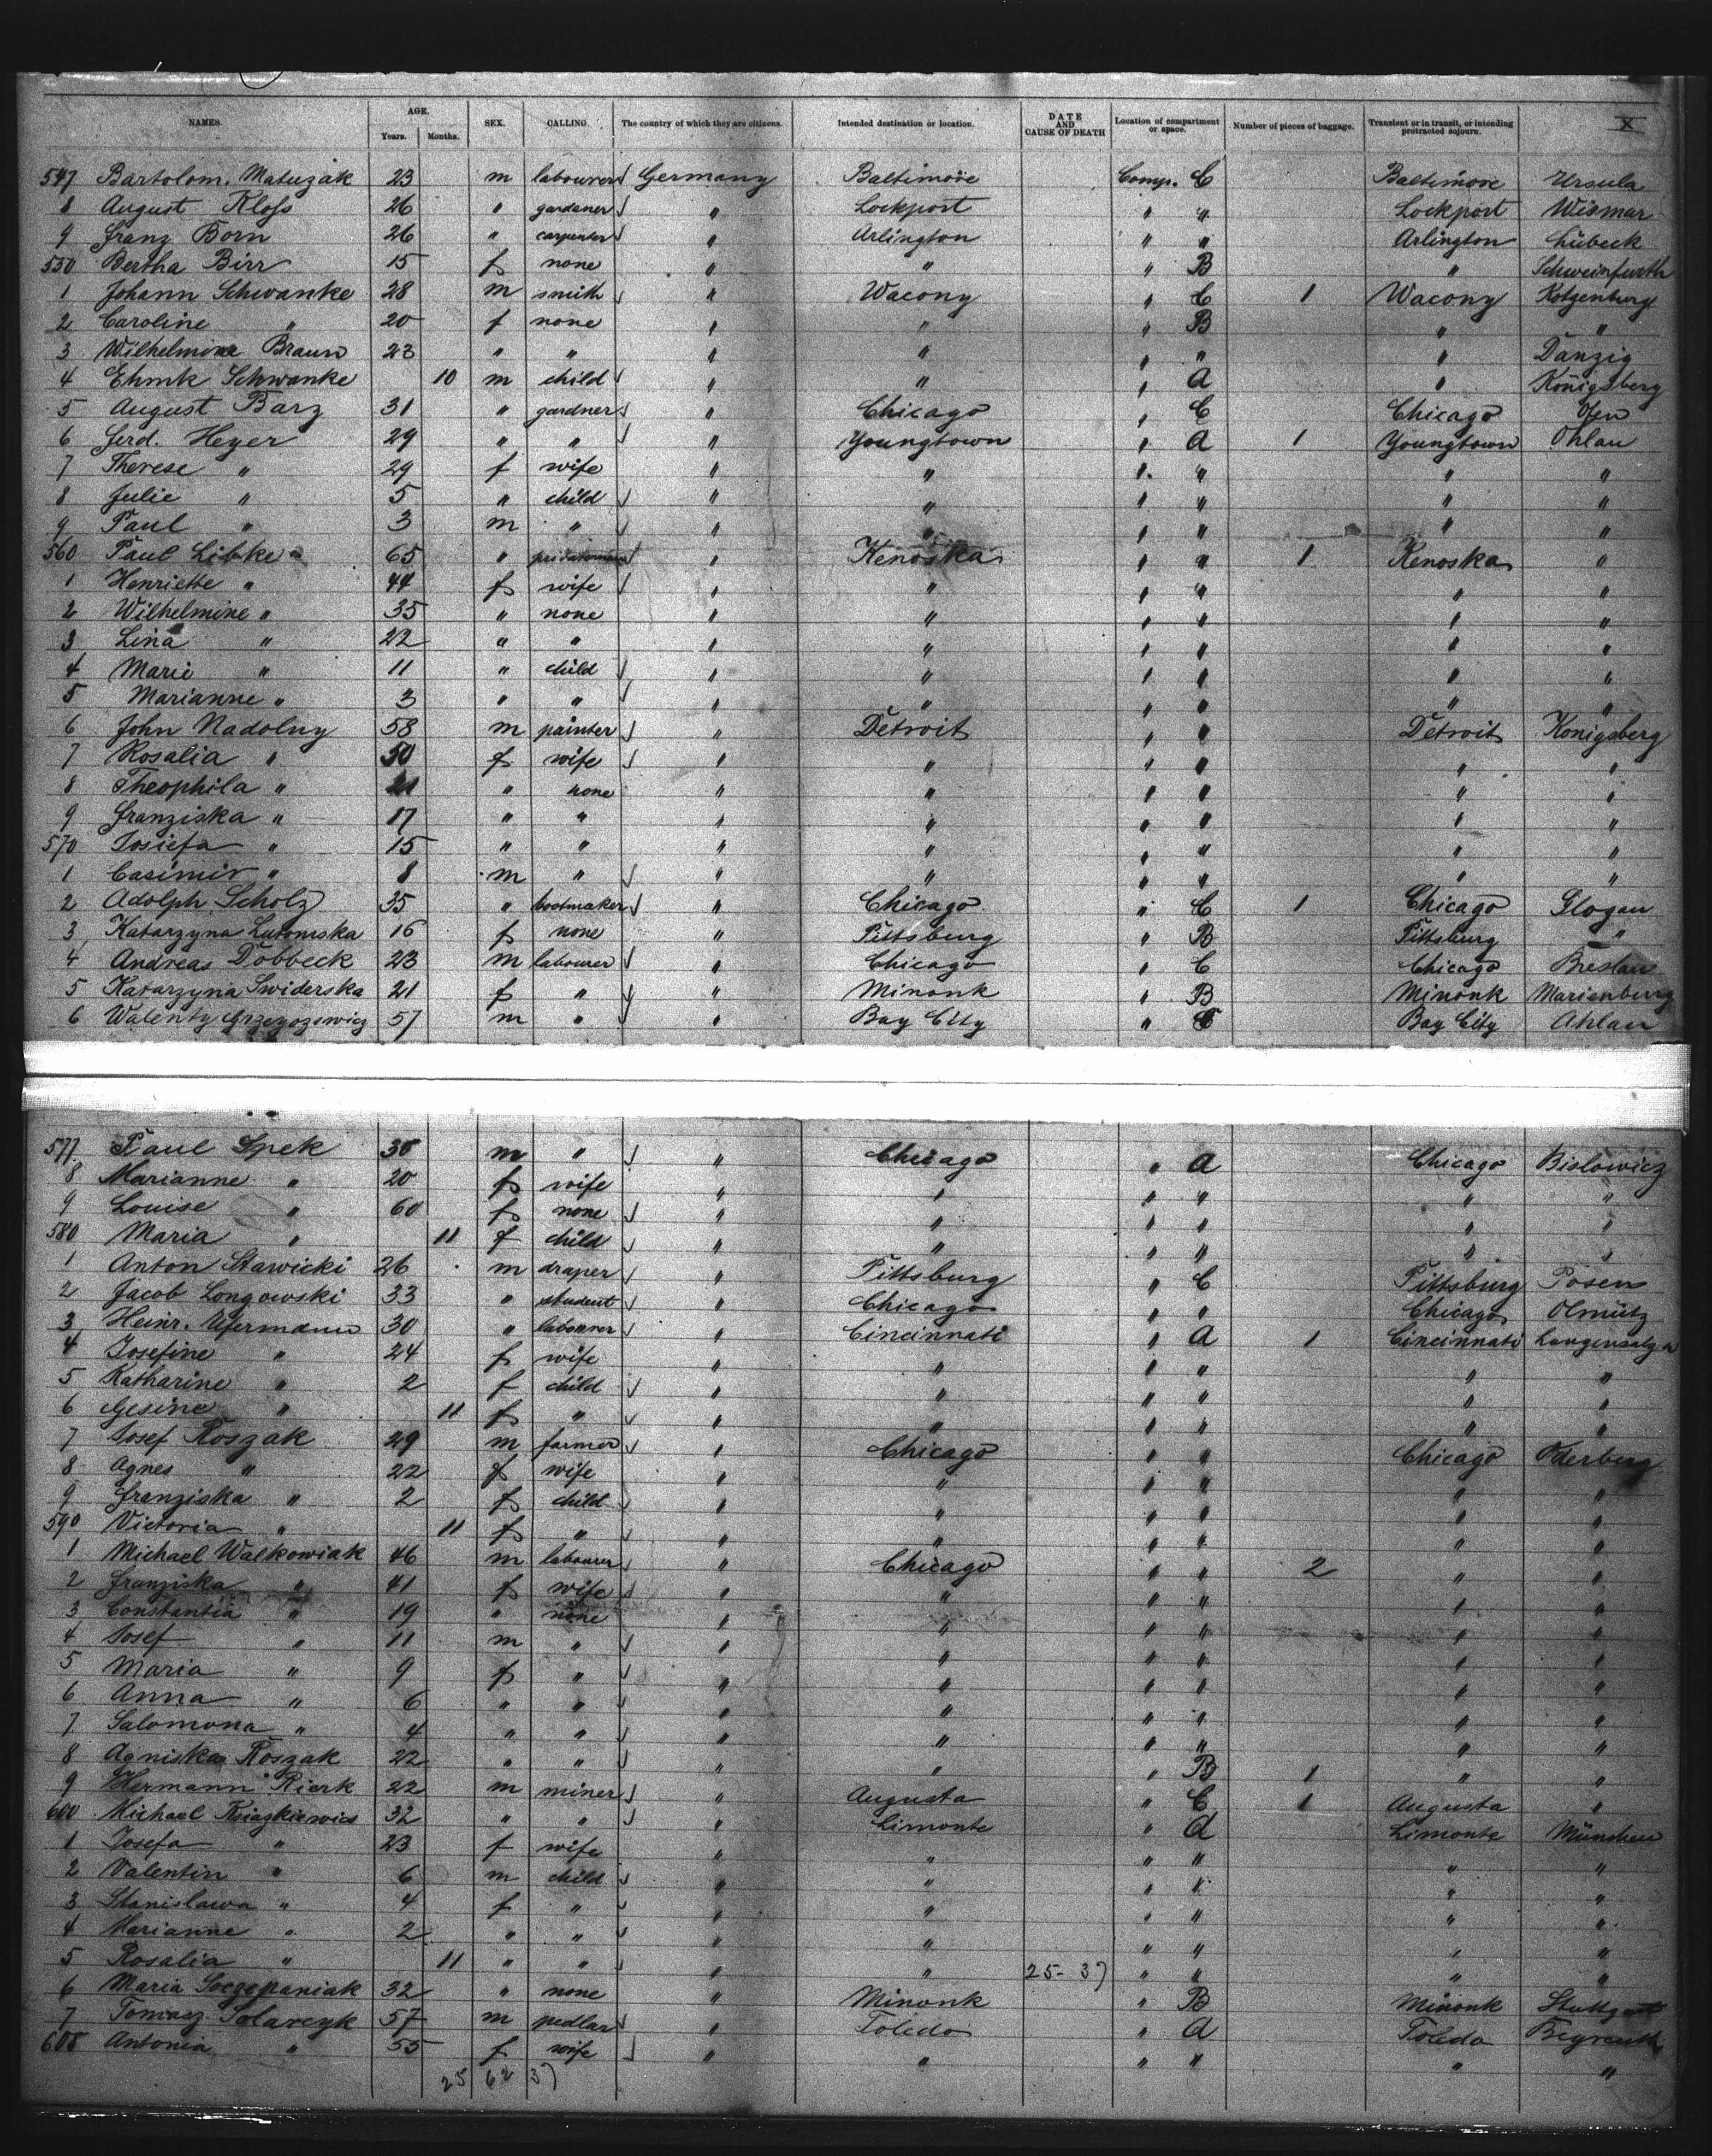 NAMES. AGE. Years. Months. SEX. CALLING. The country of which they are citizens. Intended destination or location. DATE AND CAUSE OF DEATH Location of compartment or space. Number of pieces of baggage. Transient or in transit, or intending protracted sojourn. X
547 Bartolom. Matuzak 23 m labourer Germany Baltimore Comp. C Baltimore Ursula
8 August Kloss 26 " gardener " Lockport " " Lockport Wismar
9 Franz Born 26 " carpenter " Arlington " " Arlington Lübeck
550 Bertha Birr 15 f none " " " B " Schweinfurth
1 Johann Schwanke 28 m smith " Wacony " C 1 Wacony
2 Caroline " 20 f none " " " B " "
3 Wilhelmine Braun 23 " " " " " " " Danzig
4 Ehmk Schwanke 10 m child " " " A " Königsberg
5 August Barz 31 " gardner " Chicago " C Chicago
6 Ferd. Heyer 29 " " " Youngtown " A 1 Youngtown Ohlau
7 Therese " 29 f wife " " " " " "
8 Julie " 5 " child " " " " " "
9 Paul " 3 m " " " " " " "
560 Paul Libke 65 " " Kenoska " " 1 Kenoska "
1 Henriette " 44 f wife " " " " " "
2 Wilhelmine " 35 " none " " " " " "
3 Lina " 22 " " " " " " " "
4 Marie " 11 " child " " " " " "
5 Marianne " 3 " " " " " " " "
6 John Nadolny 58 m painter " Detroit " " Detroit Konigsberg
7 Rosalia " 50 f wife " " " " " "
8 Theophila " 21 " none " " " " " "
9 Franziska " 17 " " " " " " " "
570 Josiefa " 15 " " " " " " " "
1 Casimir " 8 m " " " " " " "
2 Adolph Scholz 35 " bootmaker " Chicago " C 1 Chicago Glogau
3 Katarzyna Lutomska 16 f none " Pittsburg " B Pittsburg "
4 Andreas Dobbeck 23 m labourer " Chicago " C Chicago Breslau
5 Katarzyna Swiderska 21 f " " Minonk " B Minonk Marienburg
6 Walenty Grzegozewicz 57 m " " Bay City " C Bay City Ahlau
577 Paul Spek 30 m " " Chicago " A Chicago Bislowicz
8 Marianne " 20 f wife " " " " " "
9 Louise " 60 f none " " " " " "
580 Maria " 11 f child " " " " " "
1 Anton Stawicki 26 m draper " Pittsburg " C Pittsburg Posen
2 Jacob Longowski 33 " student " Chicago " " Chicago Olmütz
3 Heinr. Ufermann 30 " labourer " Cincinnati " A 1 Cincinnati Langensalza
4 Josefine " 24 f wife " " " " " "
5 Katharine " 2 f child " " " " " "
6 Gesine " 11 f " " " " " " "
7 Josef Roszak 29 m farmer " Chicago " " Chicago Oderberg
8 Agnes " 22 f wife " " " " " "
9 Franziska " 2 f child " " " " " "
590 Victoria " 11 f " " " " " " "
1 Michael Walkowiak 46 m labourer " Chicago " " 2 " "
2 Franziska " 41 f wife " " " " " "
3 Constantia " 19 " none " " " " " "
4 Josef " 11 m " " " " " " "
5 Maria " 9 f " " " " " " "
6 Anna " 6 " " " " " " " "
7 Salomona " 4 " " " " " " " "
8 Agniska Roszak 22 " " " " " B 1 " "
9 Hermann Rierk 22 m miner " Augusta " C 1 Augusta "
600 Michael Ksiazkiewics 32 " " " Limonte " A Limonte München
1 Josefa " 23 f wife " " " " " "
2 Valentin " 6 m child " " " " " "
3 Stanislawa " 4 f " " " " " " "
4 Marianne " 2 " " " " " " " "
5 Rosalia " 11 " " " " 25-37 " " " "
6 Maria Szczepaniak 32 " none " Minonk " B Minonk Stuttgart
7 Tomasz Solarcyk 57 m pedlar " Toledo " A Toledo Beyreuth
608 Antonia " 55 f wife " " " " " "
25 62 37